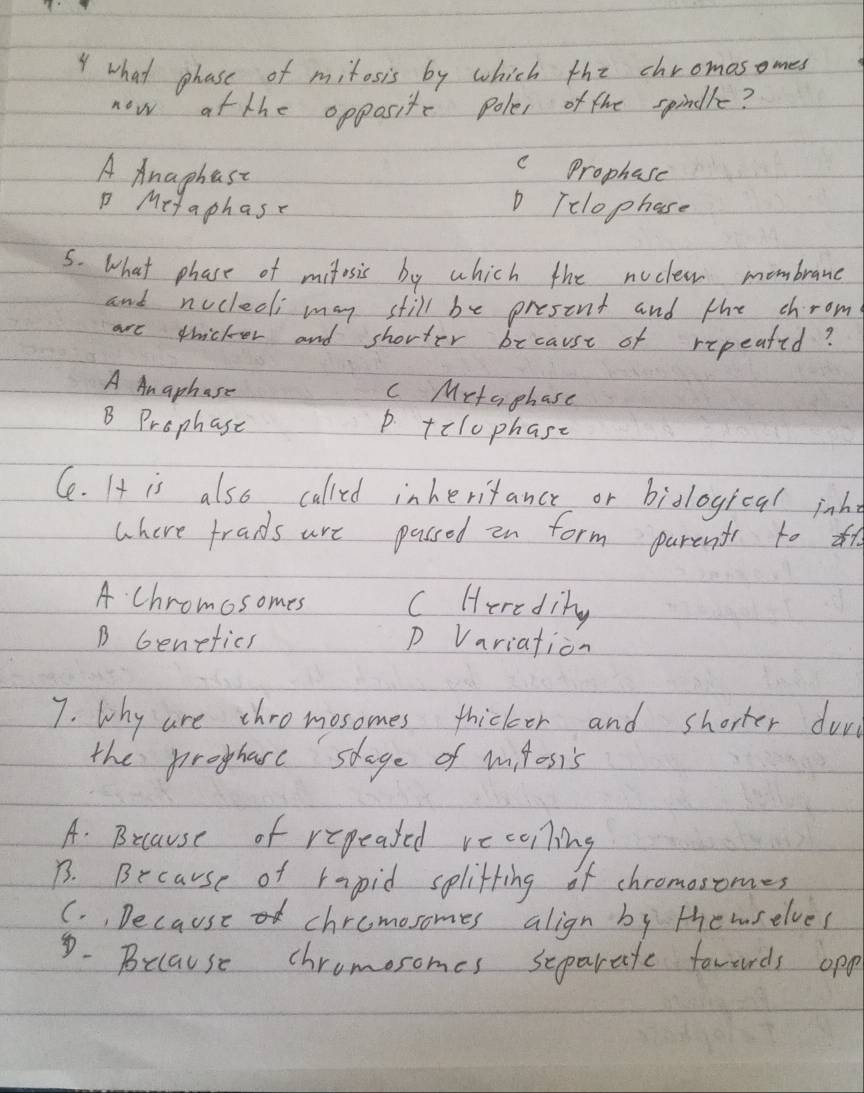 4 What phase of mitosis by which the chromosomes
now at the opposite poles of the spindle?
A Anaphase
C Prophase
B Metaphase
D Telophase
5. What phase of mitosis by which the nuclear membrane
and nucleoli may still be present and the chrom
are thicker and shorter because of repeated?
A Anaphase
C Metaphase
B Prophase
D. telophase
6. It is also called inheritance or biological inhe
Where traits are passed on form parents to
A. Chromosomes
C Heredity
B Genetics
D Variation
7. Why are chromosomes thicker and shorter duri
the prophase stage of mitosis
A. Because of repeated recoiling
B. Because of rapid splitting of chromosomes
C. Because of chromosomes align by themselves
D- Because chromosomes separate towards opp